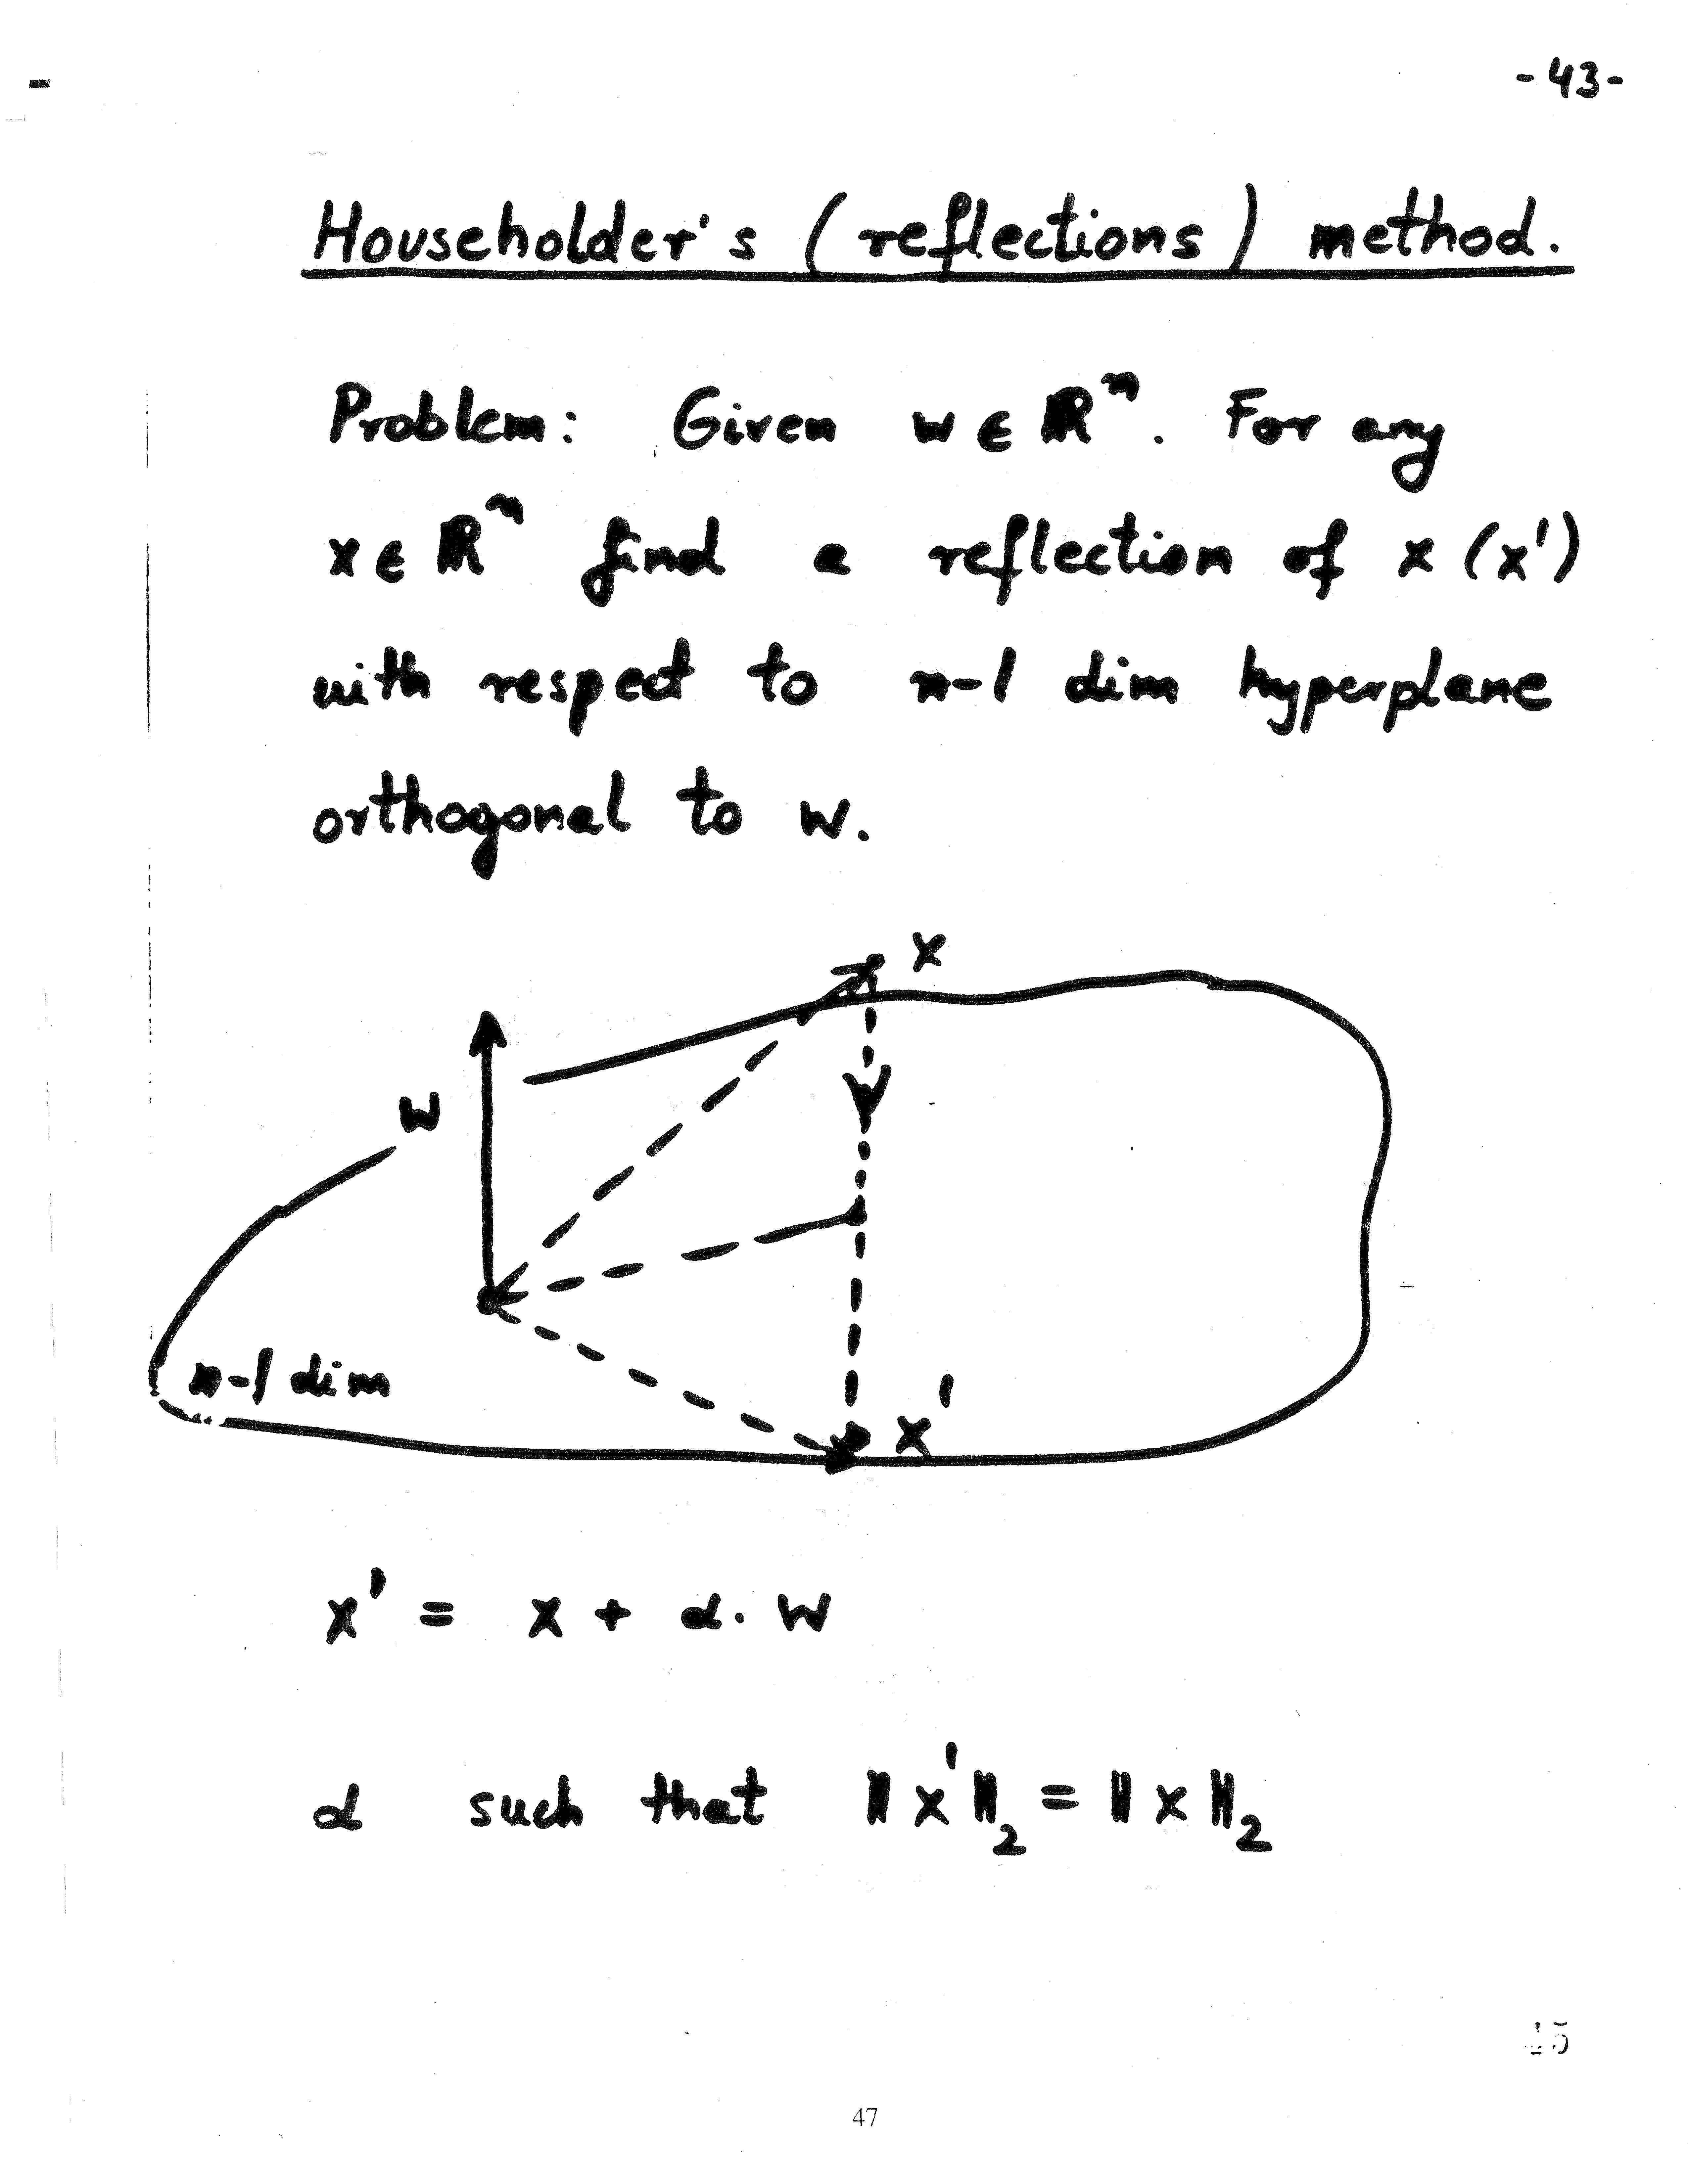 -43-
Householder's (reflections) method.
Problem: Given w ∈ ℝⁿ. For any
x ∈ ℝⁿ find a reflection of x (x')
with respect to n-1 dim hyperplane
orthogonal to w.
x
w
n-1 dim
x'
x' = x + α · w
α such that ‖x'‖₂ = ‖x‖₂
47